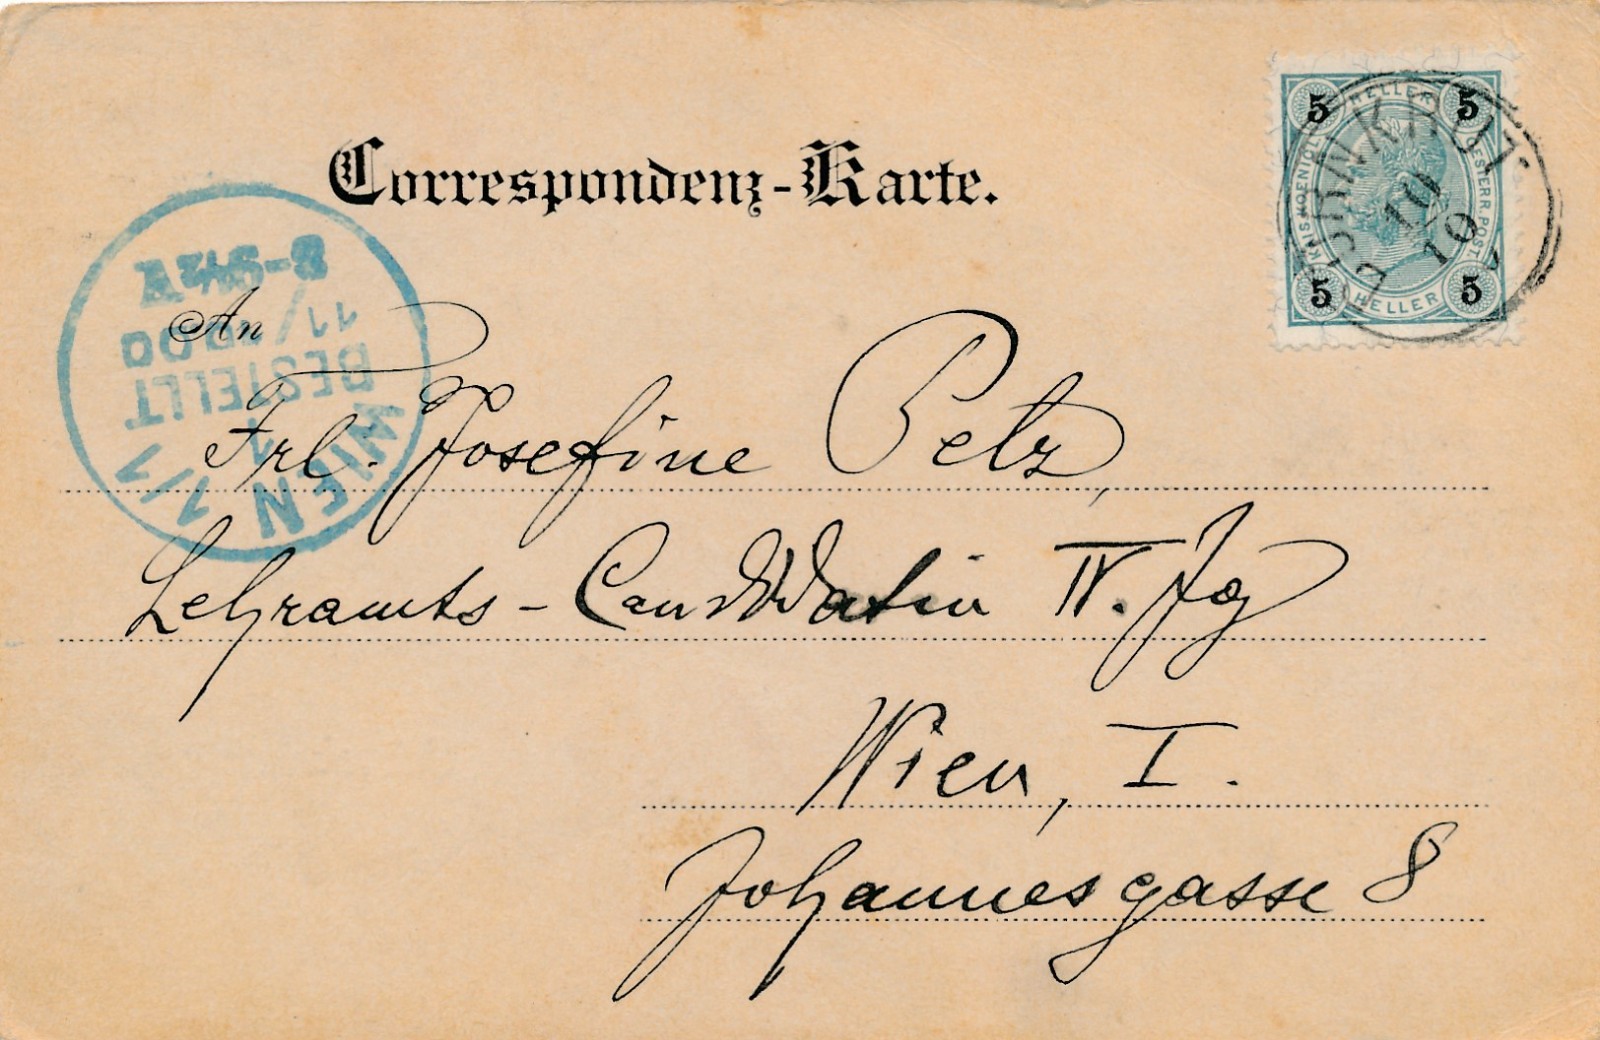 Correspondenz-Karte.
5 HELLER 5
KAIS. KOENIGL. OESTERR. POST.
5 HELLER 5
10
10
8-9½V
11/1000
BESTELLT
1
WIEN 1/1
An
Frl. Josefine Pelz,
Lehramts-Candidatin IV. Jg
Wien, I.
Johannesgasse 8